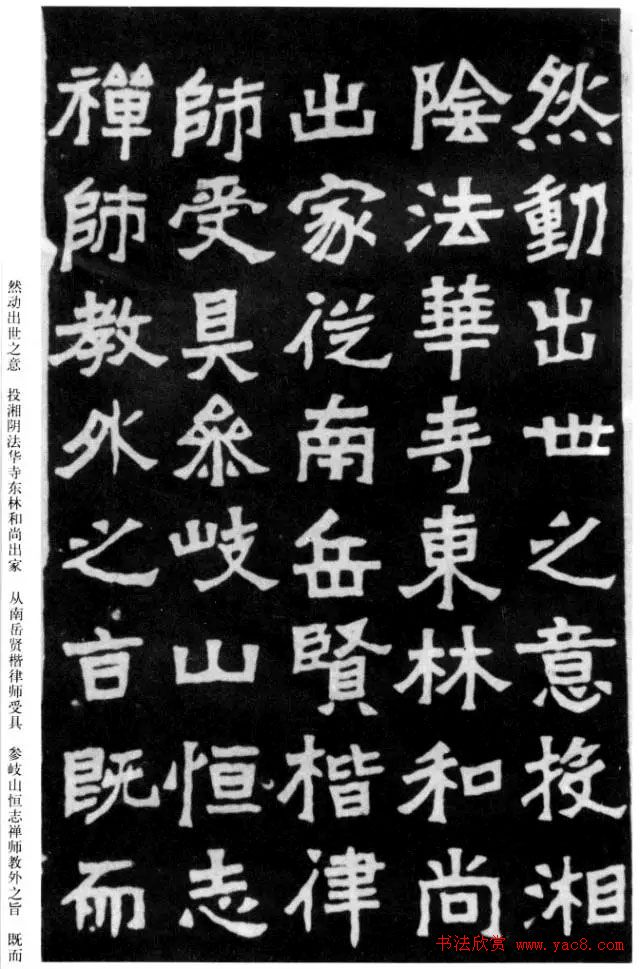 然動出世之意投湘
陰法華寺東林和尚
出家從南岳賢楷律
師受具叅岐山恒志
禪師教外之旨既而
然动出世之意　投湘阴法华寺东林和尚出家　从南岳贤楷律师受具　参岐山恒志禅师教外之旨　既而
书法欣赏 www.yac8.com